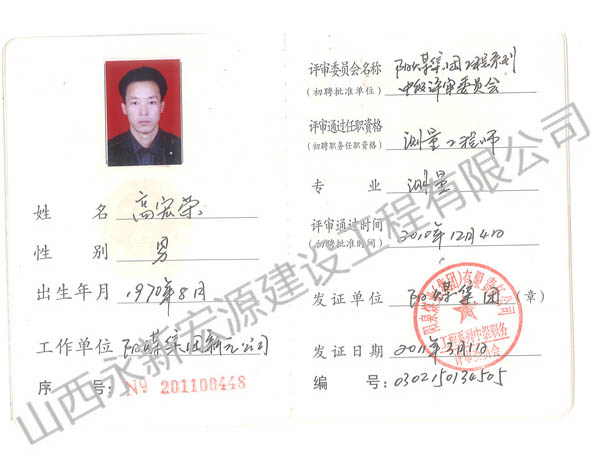 姓名 高宏荣
性别 男
出生年月 1970年8月
工作单位 阳煤集团新元公司
序号: № 201100448
评审委员会名称 阳煤集团工程系列
(初聘批准单位) 中级评审委员会
评审通过任职资格 测量工程师
(初聘职务任职资格)
专业 测量
评审通过时间 2010年12月4日
(初聘批准时间)
发证单位 阳煤集团 (章)
发证日期 2011年3月1日
编号:0302150134505
阳泉煤业(集团)有限责任公司
工程系列中级职务
评审委员会
山西永新宏源建设工程有限公司